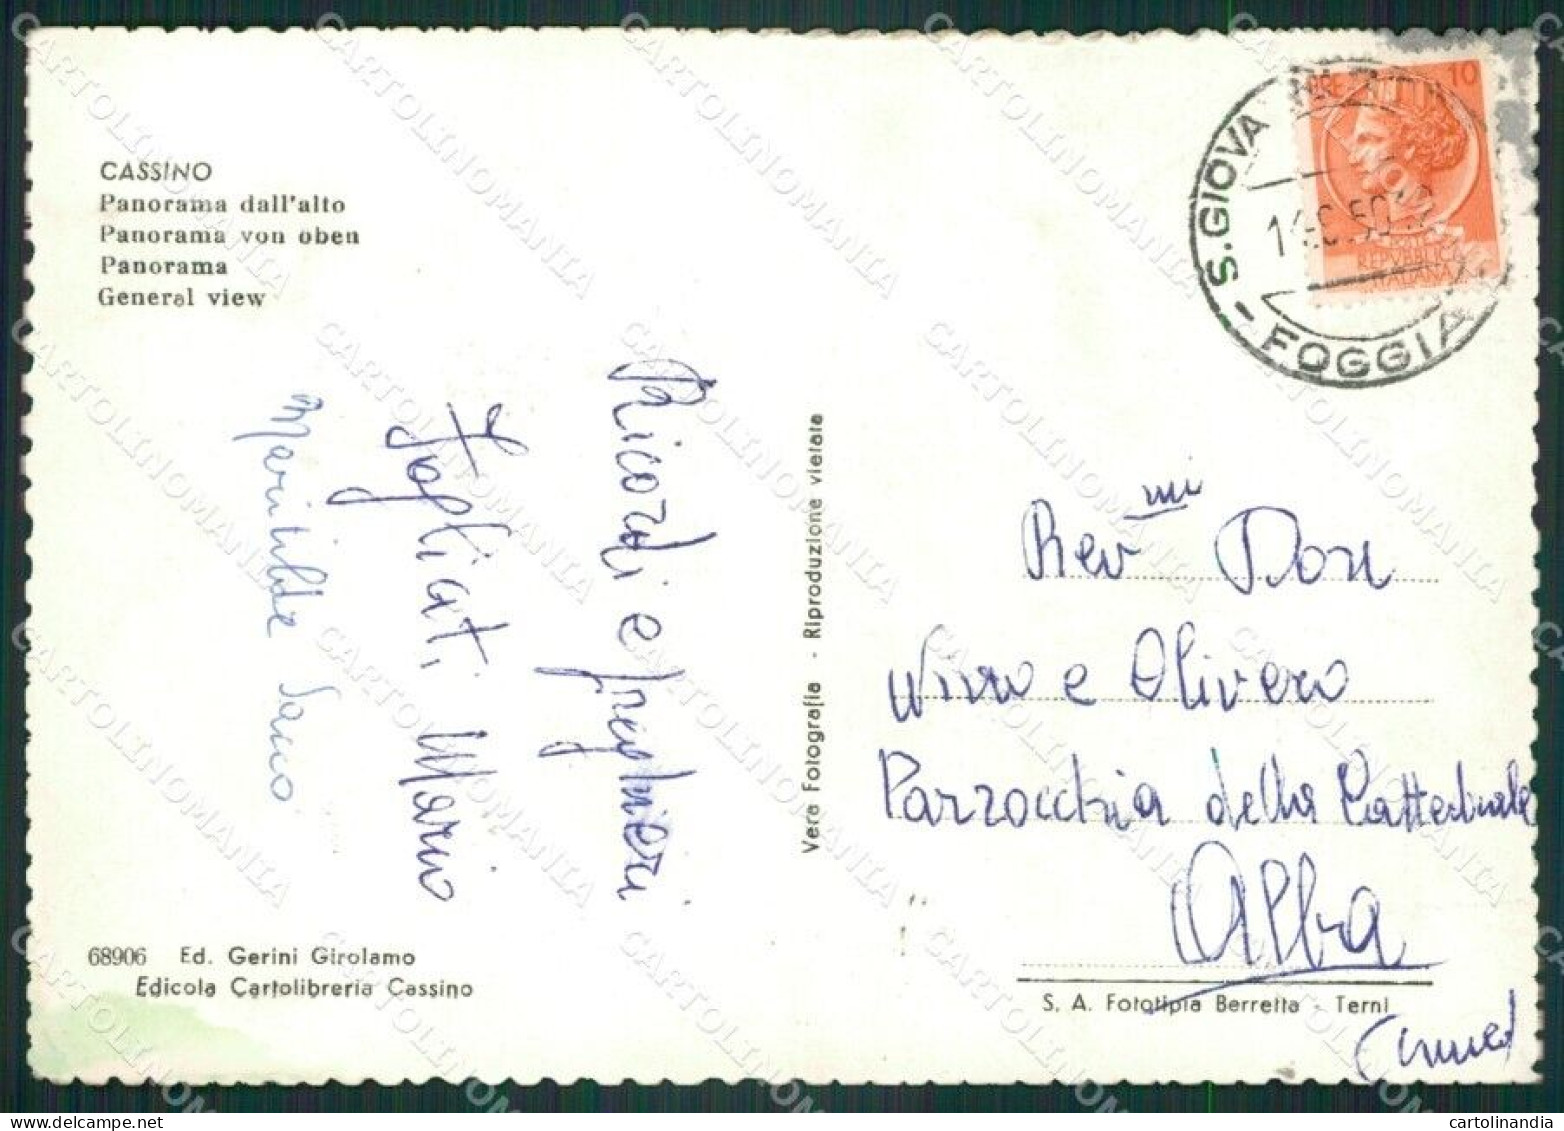 CASSINO
Panorama dall'alto
Panorama von oben
Panorama
General view
Ricordi e preghieri
Fogliati Mario
Maritilde Sacco
68906 Ed. Gerini Girolamo
Edicola Cartolibreria Cassino
Vera Fotografia - Riproduzione vietata
10
REPVBBLICA
ITALIANA
S.GIOVA
- FOGGIA
Rev mi Don
Nino e Olivero
Parrocchia della Cattedrale
Alba
S. A. Fototipia Berretta - Terni
(Cuneo)
CARTOLINOMANIA
cartolinandia